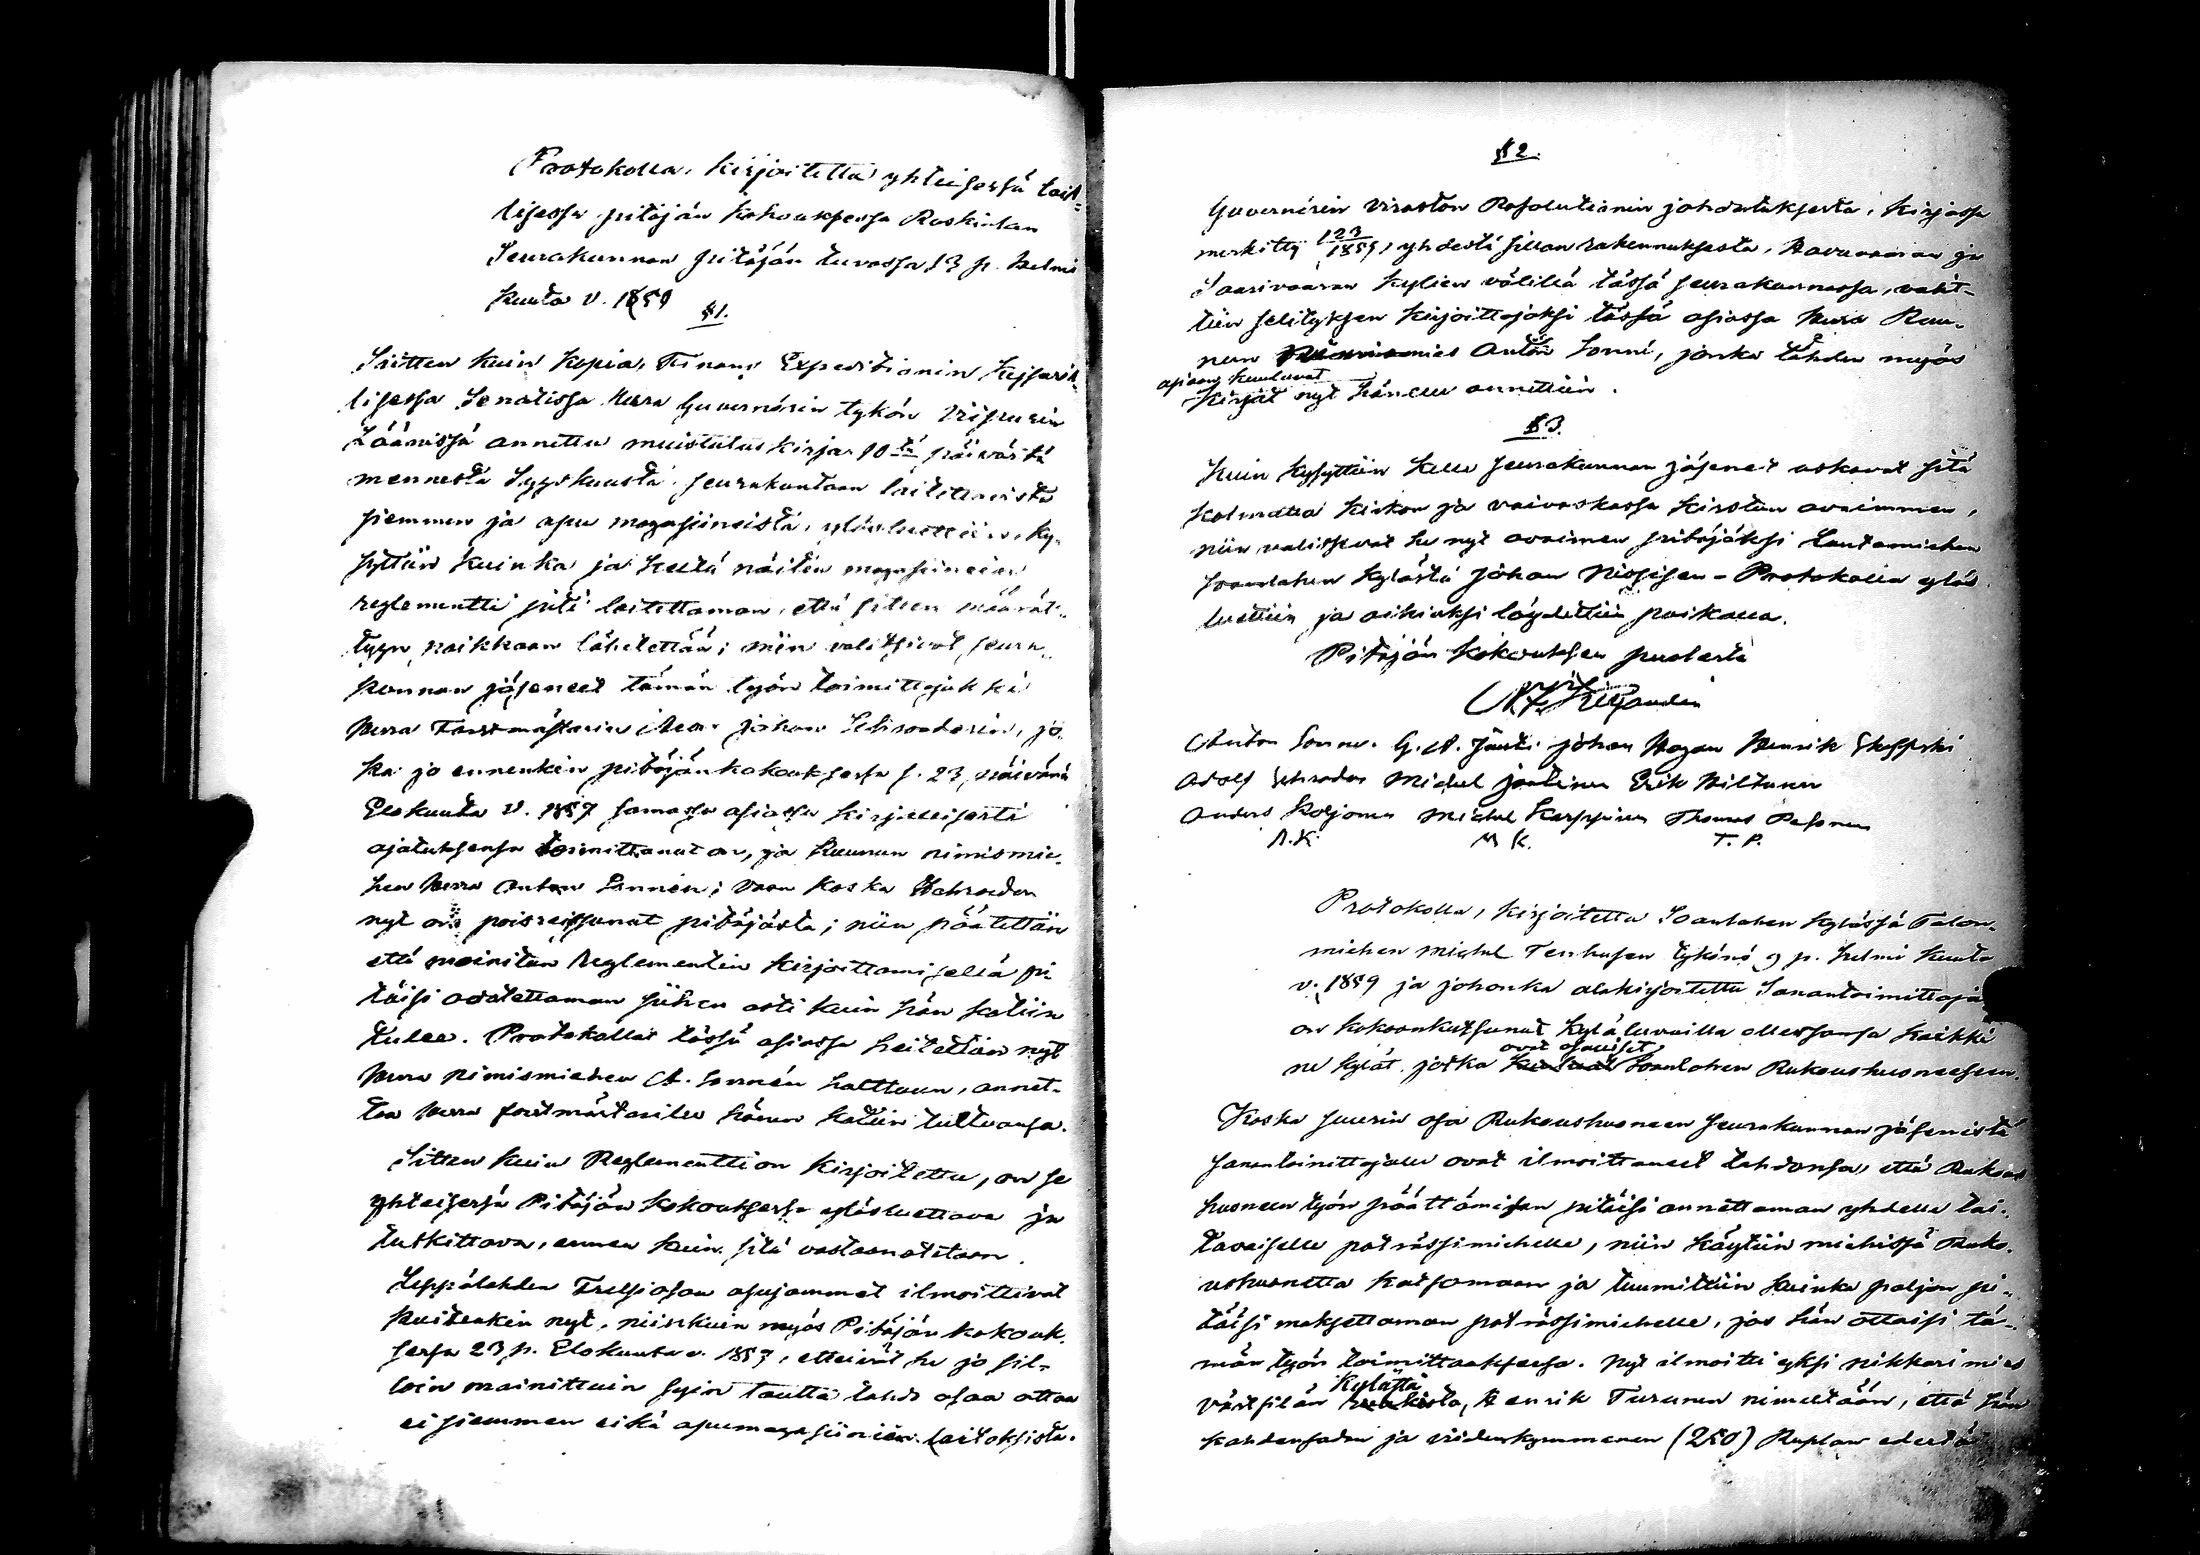 Protokolla, kirjoitettu yhteisessä lail-
lisessa pitäjän kokouksessa Ruskialan
Seurakunnan pitäjän tuvassa 13 p. Helmi
kuuta v. 1859
§1.
Sitten kuin kopia, Finans Expeditionin Keisaril
lisessa Senatissa Herra Guvernörin tykön Viipurin
Läänissä annettu muistutuskirja 10tä päivästä
mennestä Syyskuusta seurakuntaan laitettavista
siemmen ja apu magasiineista, ylösluettiin, ky-
syttiin kuinka ja keltä näitin magasiinein
reglementti piti laitettaman, että sitten määrät-
tyyn paikkaan lähetettää; niin valitsivat seura-
kunnan jäseneet tämän työn toimittajaksi
Herra Forstmästarin Johan Schroderin, jo-
ka jo ennenkin pitäjänkokouksessa s. 23 päivänä
Elokuuta v. 1857 samassa asiassa kirjallisesti
ajatuksensa toimittanut on, ja Kuunun nimismie-
hen Herra Anton Sonnén; vaan koska Schroder
nyt on poisreissunut pitäjästä; niin päätettiin
että mainitun Reglementin kirjoittamisella pi
täisi odotettaman siihen asti kuin hän kotiin
tulee. Protokollat tässä asiassa heitettiin nyt
Herra nimismiehen A. Sonnén halttuun, annet-
taa Herra forstmästarille hänen kotiin tultuansa.
Sitten kuin Reglementti on kirjoitettu, on se
yhteisessä Pitäjän kokouksessa ylösluettava ja
tutkittava, ennen kuin sitä vastaanotetaan.
Leppälahden Frelsiosan asujammet ilmoittivat
kuitenkin nyt, niinkuin myös Pitäjän kokouk-
sessa 23 p. Elokuuta v. 1857, etteivät he jo sil-
loin mainittuin syin tautta tahdo osaa ottaa
ei siemmen eikä apumagasiinien laitoksista.
§2.
Guvernörin viraston Resolutionin johdatuksesta, kirjassa
merkitty 123/1859, yhdestä sillan rakennuksesta, Havuvaaran ja
Saarivaaran kylien välillä tässä seurakunnassa, valit-
tiin selityksen kirjoittajaksi tässä asiassa Herra Ruu-
nun nimismies Anton Sonné, jonka tähden myös
asiaan kuuluvat
kirjat nyt hänelle annettiin.
§3.
Kuin kysyttiin kelle seurakunnan jäseneet uskovat sitä
kolmatta kirkon ja vaivaskassa kirstun avaimmen,
niin valitsevat he nyt avaimen pitäjäksi Lautamiehen
Soanlahen kylästä Johan Nissisen - Protokolla ylös
luettiin ja oikiaksi löydettiin paikalla.
Pitäjän kokouksen puolesta
Anton Sonné. G. A. Jänti Johan Hagan Henrik
Adolf Schroder Michel Juntinen Erik Hiltunen
Anders Koljonen Michel Karppinen Thomas Pesonen
A. K. M K. T. P.
Protokolla, kirjoitettu Soanlahen kylässä Talon-
miehen Michel Tenhusen tykönä 9 p. Helmi kuuta
v. 1859 ja johonka alakirjoitettu Sanantoimittaja
on kokoonkutsunut kyläluvuilla ollessansa kaikki
ovat osaliset
ne kylät, jotka kuuluvat Soanlahen Rukoushuoneeseen.
Koska suurin osa Rukoushuoneen seurakunnan jäsenistä
sanantoimittajalle ovat ilmoittaneet tahdonsa, että Rukous
huoneen työn päättämisen pitäisi annettaman yhdelle tai-
tavaiselle poträssimiehelle, niin käytiin miehissä Ruko-
ushuonetta katsomaan ja tuumittiin kuinka paljon pi-
täisi maksettaman poträssimiehelle, jos hän ottaisi tä-
män työn toimittaaksensa. Nyt ilmoitti yksi nikkari mies
kylästä
Värtsilän ruukista, Henrik Turunen nimeltään, että hän
kahdensadan ja viidenkymmenen (250) Ruplan edestä